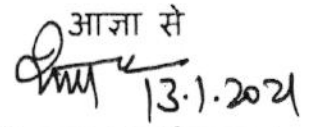 आज्ञा से
13.1.2021